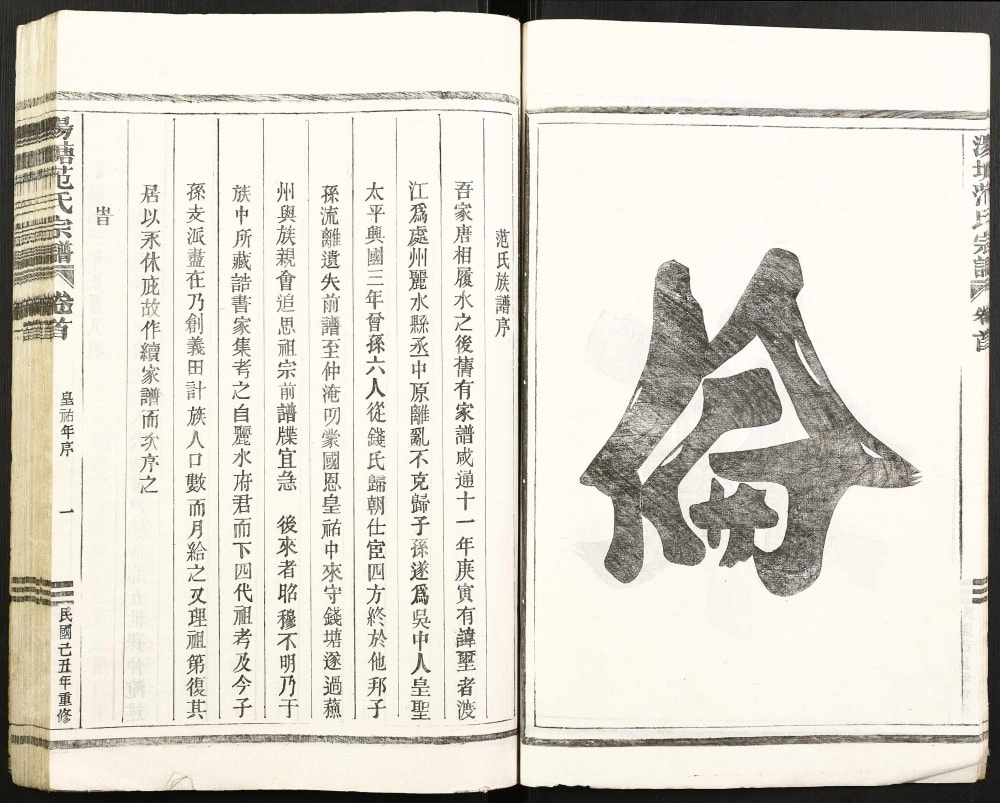 倫
范氏族譜序
吾家唐相履水之後舊有家譜咸通十一年庚寅有諱璽者渡
江爲處州麗水縣丞中原離亂不克歸子孫遂爲吳中人皇聖
太平興國三年曾孫六人從錢氏歸朝仕宦四方終於他邦子
孫流離遺失前譜至仲淹叨蒙國恩皇祐中來守錢塘遂過蘇
州與族親會追思祖宗前譜牒宜急 後來者昭穆不明乃于
族中所藏誥書家集考之自麗水府君而下四代祖考及今子
孫支派盡在乃創義田計族人口數而月給之又理祖第復其
居以永休庇故作續家譜而次序之
皆
湯塘范氏宗譜 卷首 皇祐年序 一 民國己丑年重修
范氏宗譜 卷首